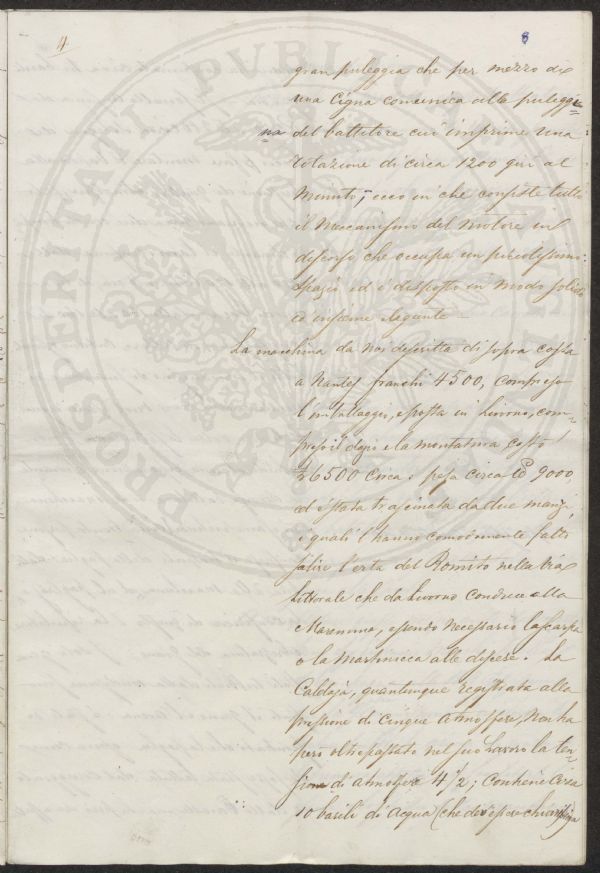 4
8
gran puleggia che per mezzo di
una Cigna comunica alla puleggi=
na del battitore cui imprime una
rotazione di circa 1200 giri al
Minuto; ecco in che consiste tutto
il Meccanismo del Motore in
discorso che occupa un piccolissimo
Spazio ed è disposto in modo solido
ed insieme elegante =
La macchina da noi descritta di sopra costa
a Nantes franchi 4500, compreso
l'imballaggio, e posta in Livorno, com=
preso il dazio e la montatura costò
6500 Circa: pesa circa 9000
ed è stata trascinata da due manzi
i quali l'hanno comodamente fatta
salire l'erta del Romito nella Via
Littorale che da Livorno conduce alla
Maremma, essendo necessario la scarpa
o la martinicca alle discese. La
Caldaja, quantunque registrata alla
pressione di Cinque atmosfere, Non ha
però oltrepassato nel suo Lavoro la ten=
sione di atmosfere 4 1/2; Contiene Circa
10 barili di acqua (che deve esser chiarissima
PROSPERITATI PVBLICAE